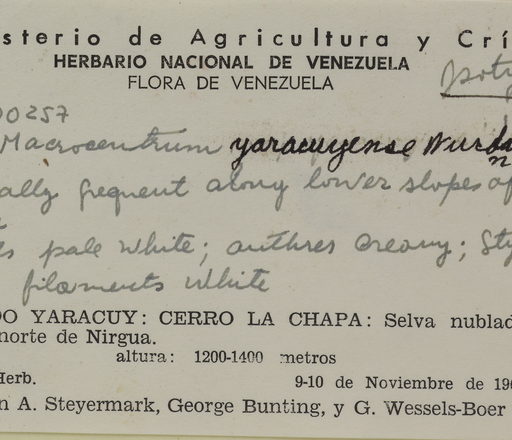 sterio de Agricultura y Crí
HERBARIO NACIONAL DE VENEZUELA
FLORA DE VENEZUELA
poty
00257
Macrocentrum yaracuyense Wurda
n
ally frequent along lower slopes of
s pale white; anthres creamy; Sty
filaments white
DO YARACUY: CERRO LA CHAPA: Selva nublad
norte de Nirgua.
altura: 1200-1400 metros
Herb. 9-10 de Noviembre de 196
n A. Steyermark, George Bunting, y G. Wessels-Boer